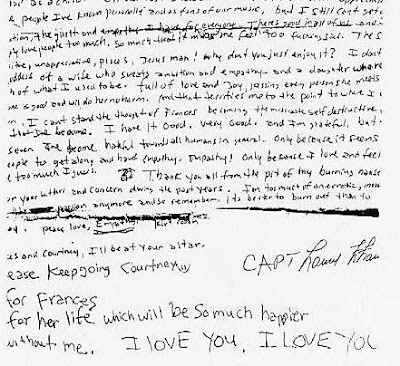 & people I've known personally and as fans of our music, but I still can't get
ation, the guilt and empathy I have for everyone. There's good in all of us and I
ply love people too much. So much that it makes me feel too fucking sad. The s
itive, unappreciative, pisces, Jesus man! why don't you just enjoy it? I don't
goddess of a wife who sweats ambition and empathy. and a daughter who re
h of what I used to be. full of love and joy, kissing every person she meets
ne is good and will do her no harm. And that terrifies me to the point to where I
n. I can't stand the thought of Frances becoming the miserable self destructive,
that I've become. I have it Good. very Good. and I'm grateful, but
seven I've become hateful towards all humans in general. Only because it seems
eople to get along and have empathy. Empathy! Only because I love and feel
e too much I guess. Thank you all from the pit of my burning nause
or your letters and concern during the past years. I'm too much of an erratic, moo
person anymore and so remember, its better to burn out than to
ay. peace love, Empathy. Kurt Cobain
es and Courtney, I'll be at your altar.
ease Keep going Courtney
CAPT
for Frances
for her life which will be so much happier
without me. I LOVE YOU, I LOVE YOU